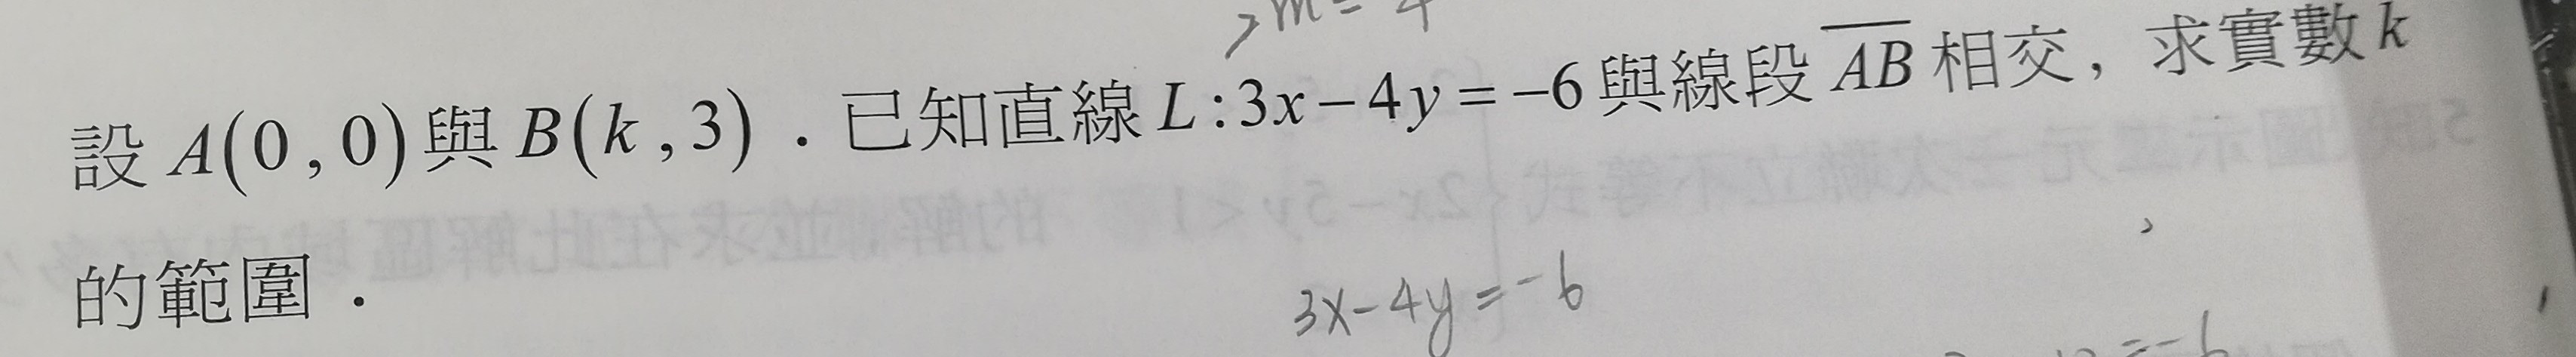 >m=4
設 A(0,0)與 B(k,3).已知直線 L:3x-4y=-6與線段 AB 相交,求實數 k
的範圍.
3x-4y=-6
=-6